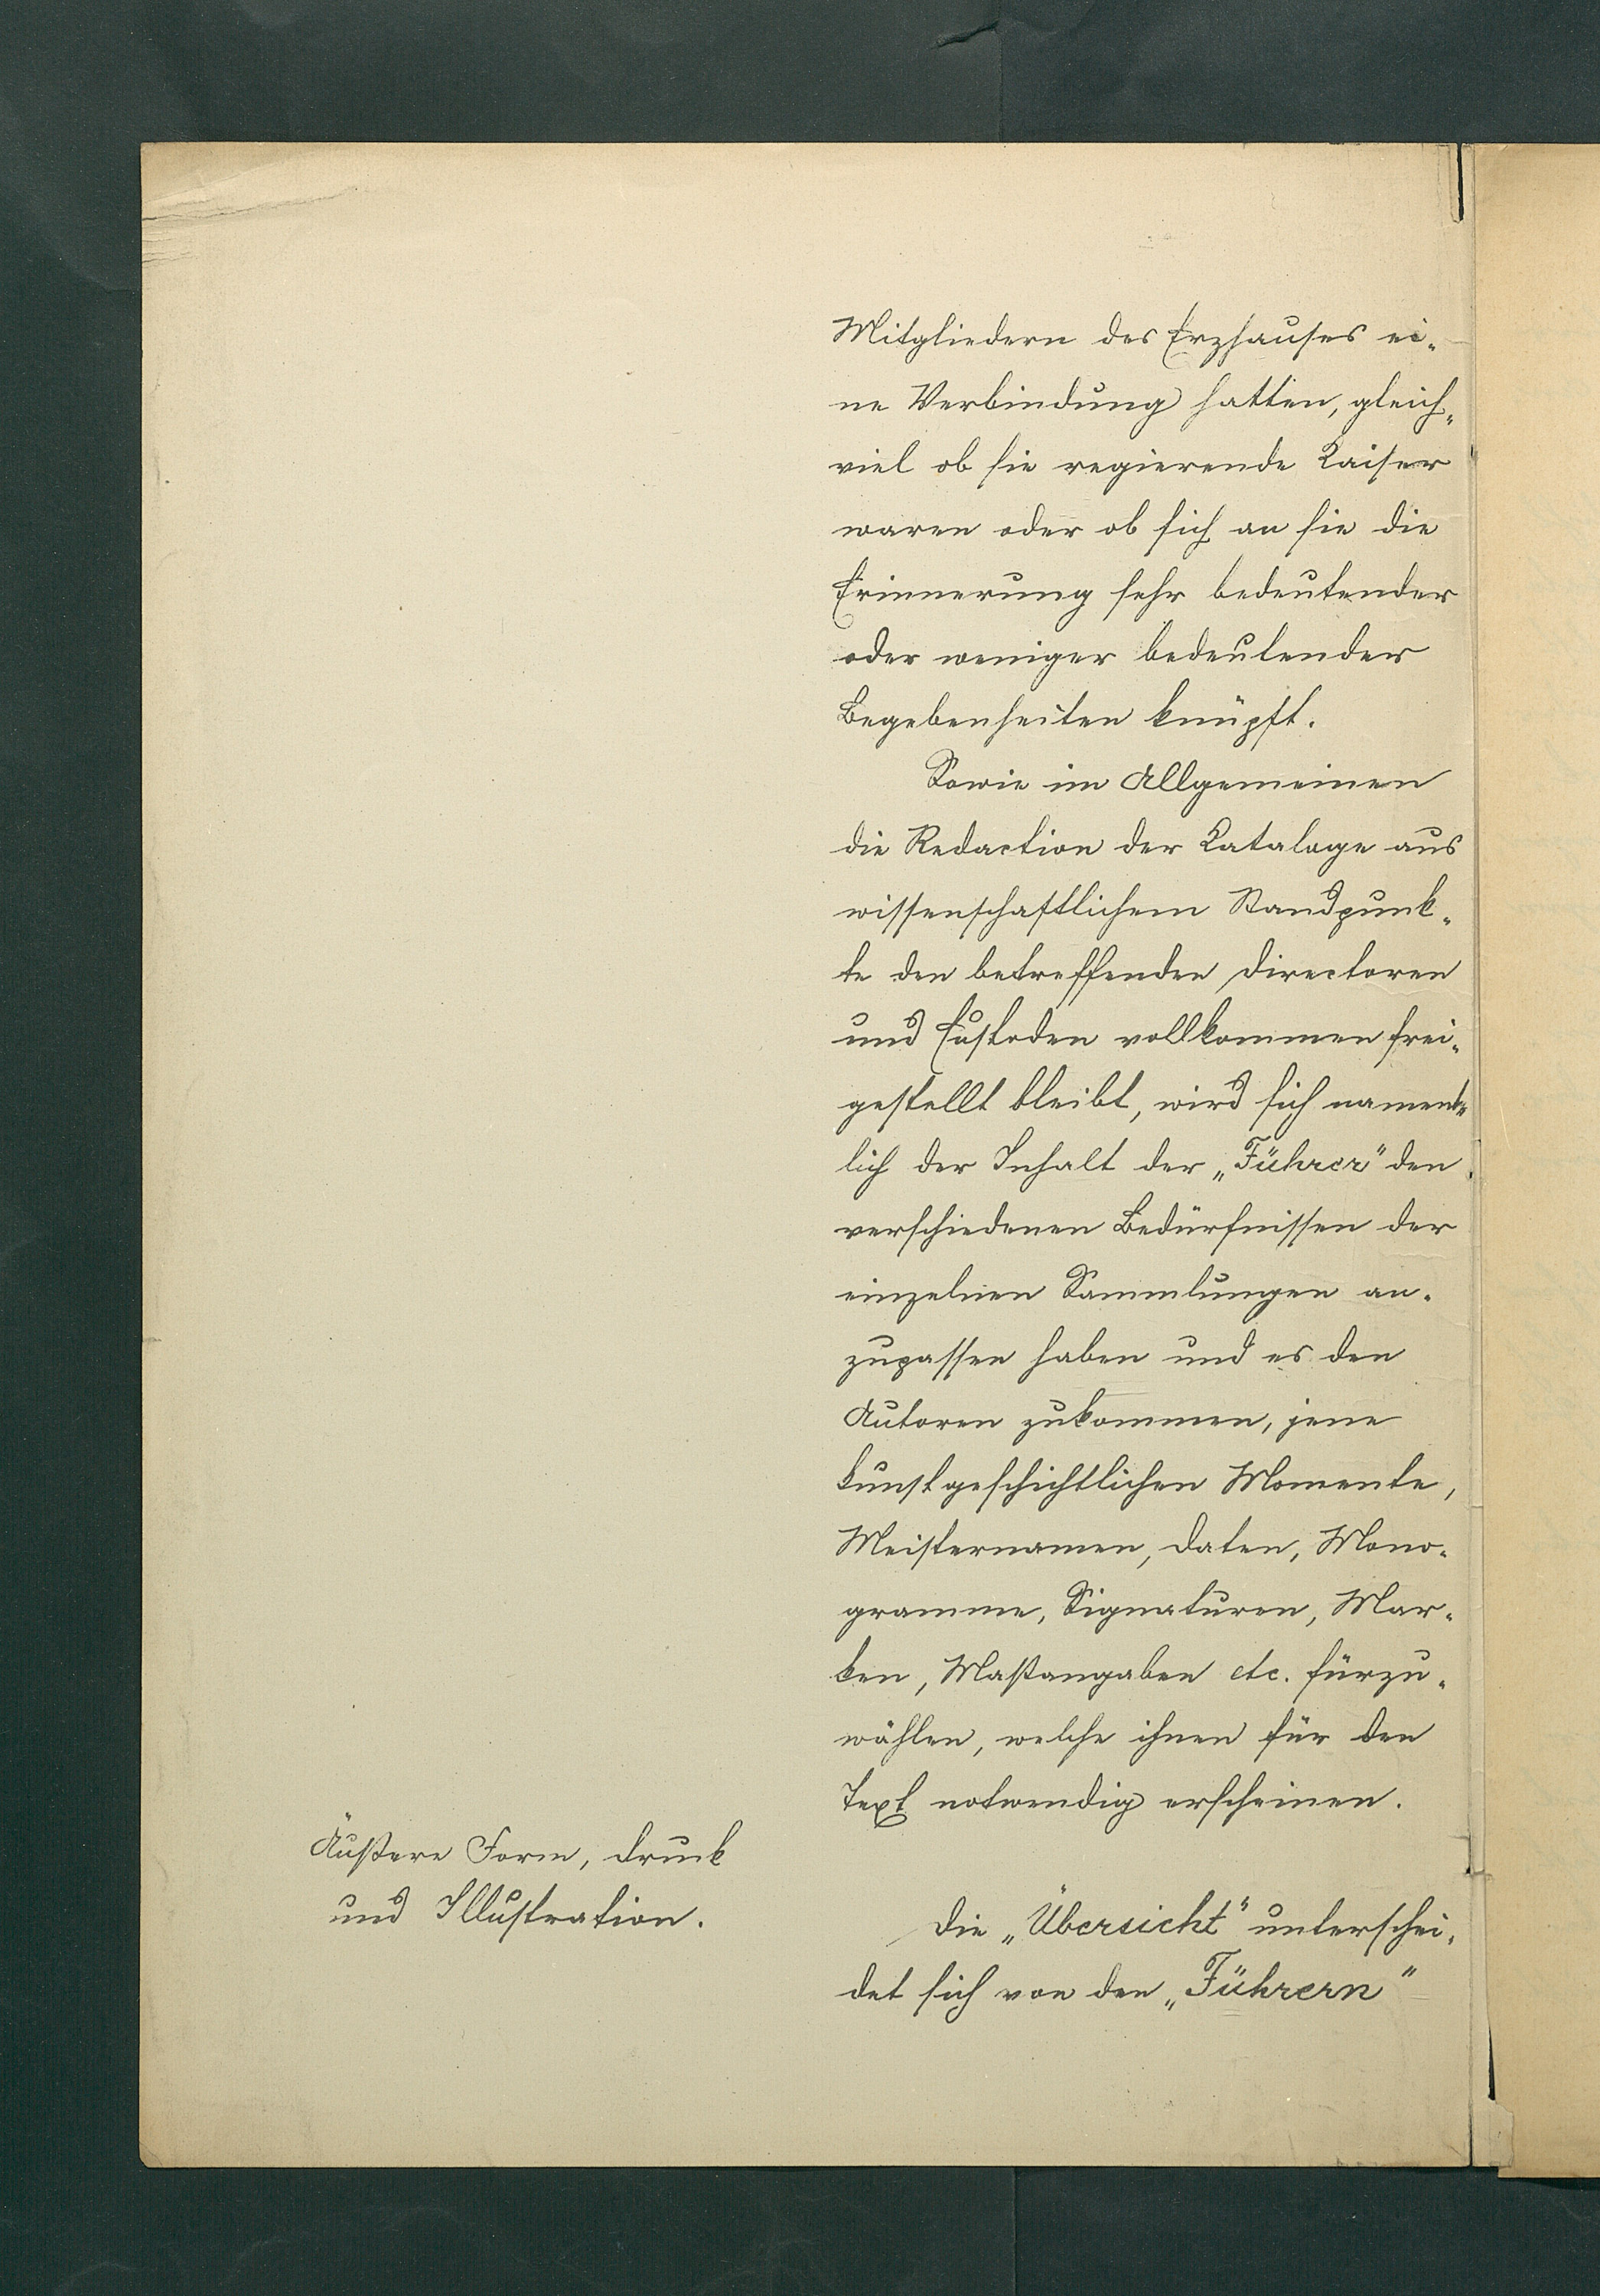 Mitgliedern des Erzhauses ei-
ne Verbindung hatten, gleich-
viel ob sie regierende Kaiser
waren oder ob sich an sie die
Erinnerung sehr bedeutender
oder weniger bedeutender
Begebenheiten knüpft.
Sowie im Allgemeinen
die Redaction der Kataloge aus
wissenschaftlichem Standpunk-
te den betreffenden Directoren
und Custoden vollkommen frei-
gestellt bleibt, wird sich nament-
lich der Inhalt der „Führer" den
verschiedenen Bedürfnissen der
einzelnen Sammlungen an-
zupassen haben und es den
Autoren zukommen, jene
kunstgeschichtlichen Momente,
Meisternamen, Daten, Mono-
gramme, Signaturen, Mar-
ken, Maßangaben etc. fürzu-
wählen, welche ihnen für den
Text notwendig erscheinen.
Äußere Form, Druck
und Illustration.
Die „Übersicht" unterschei-
det sich von den „Führern"